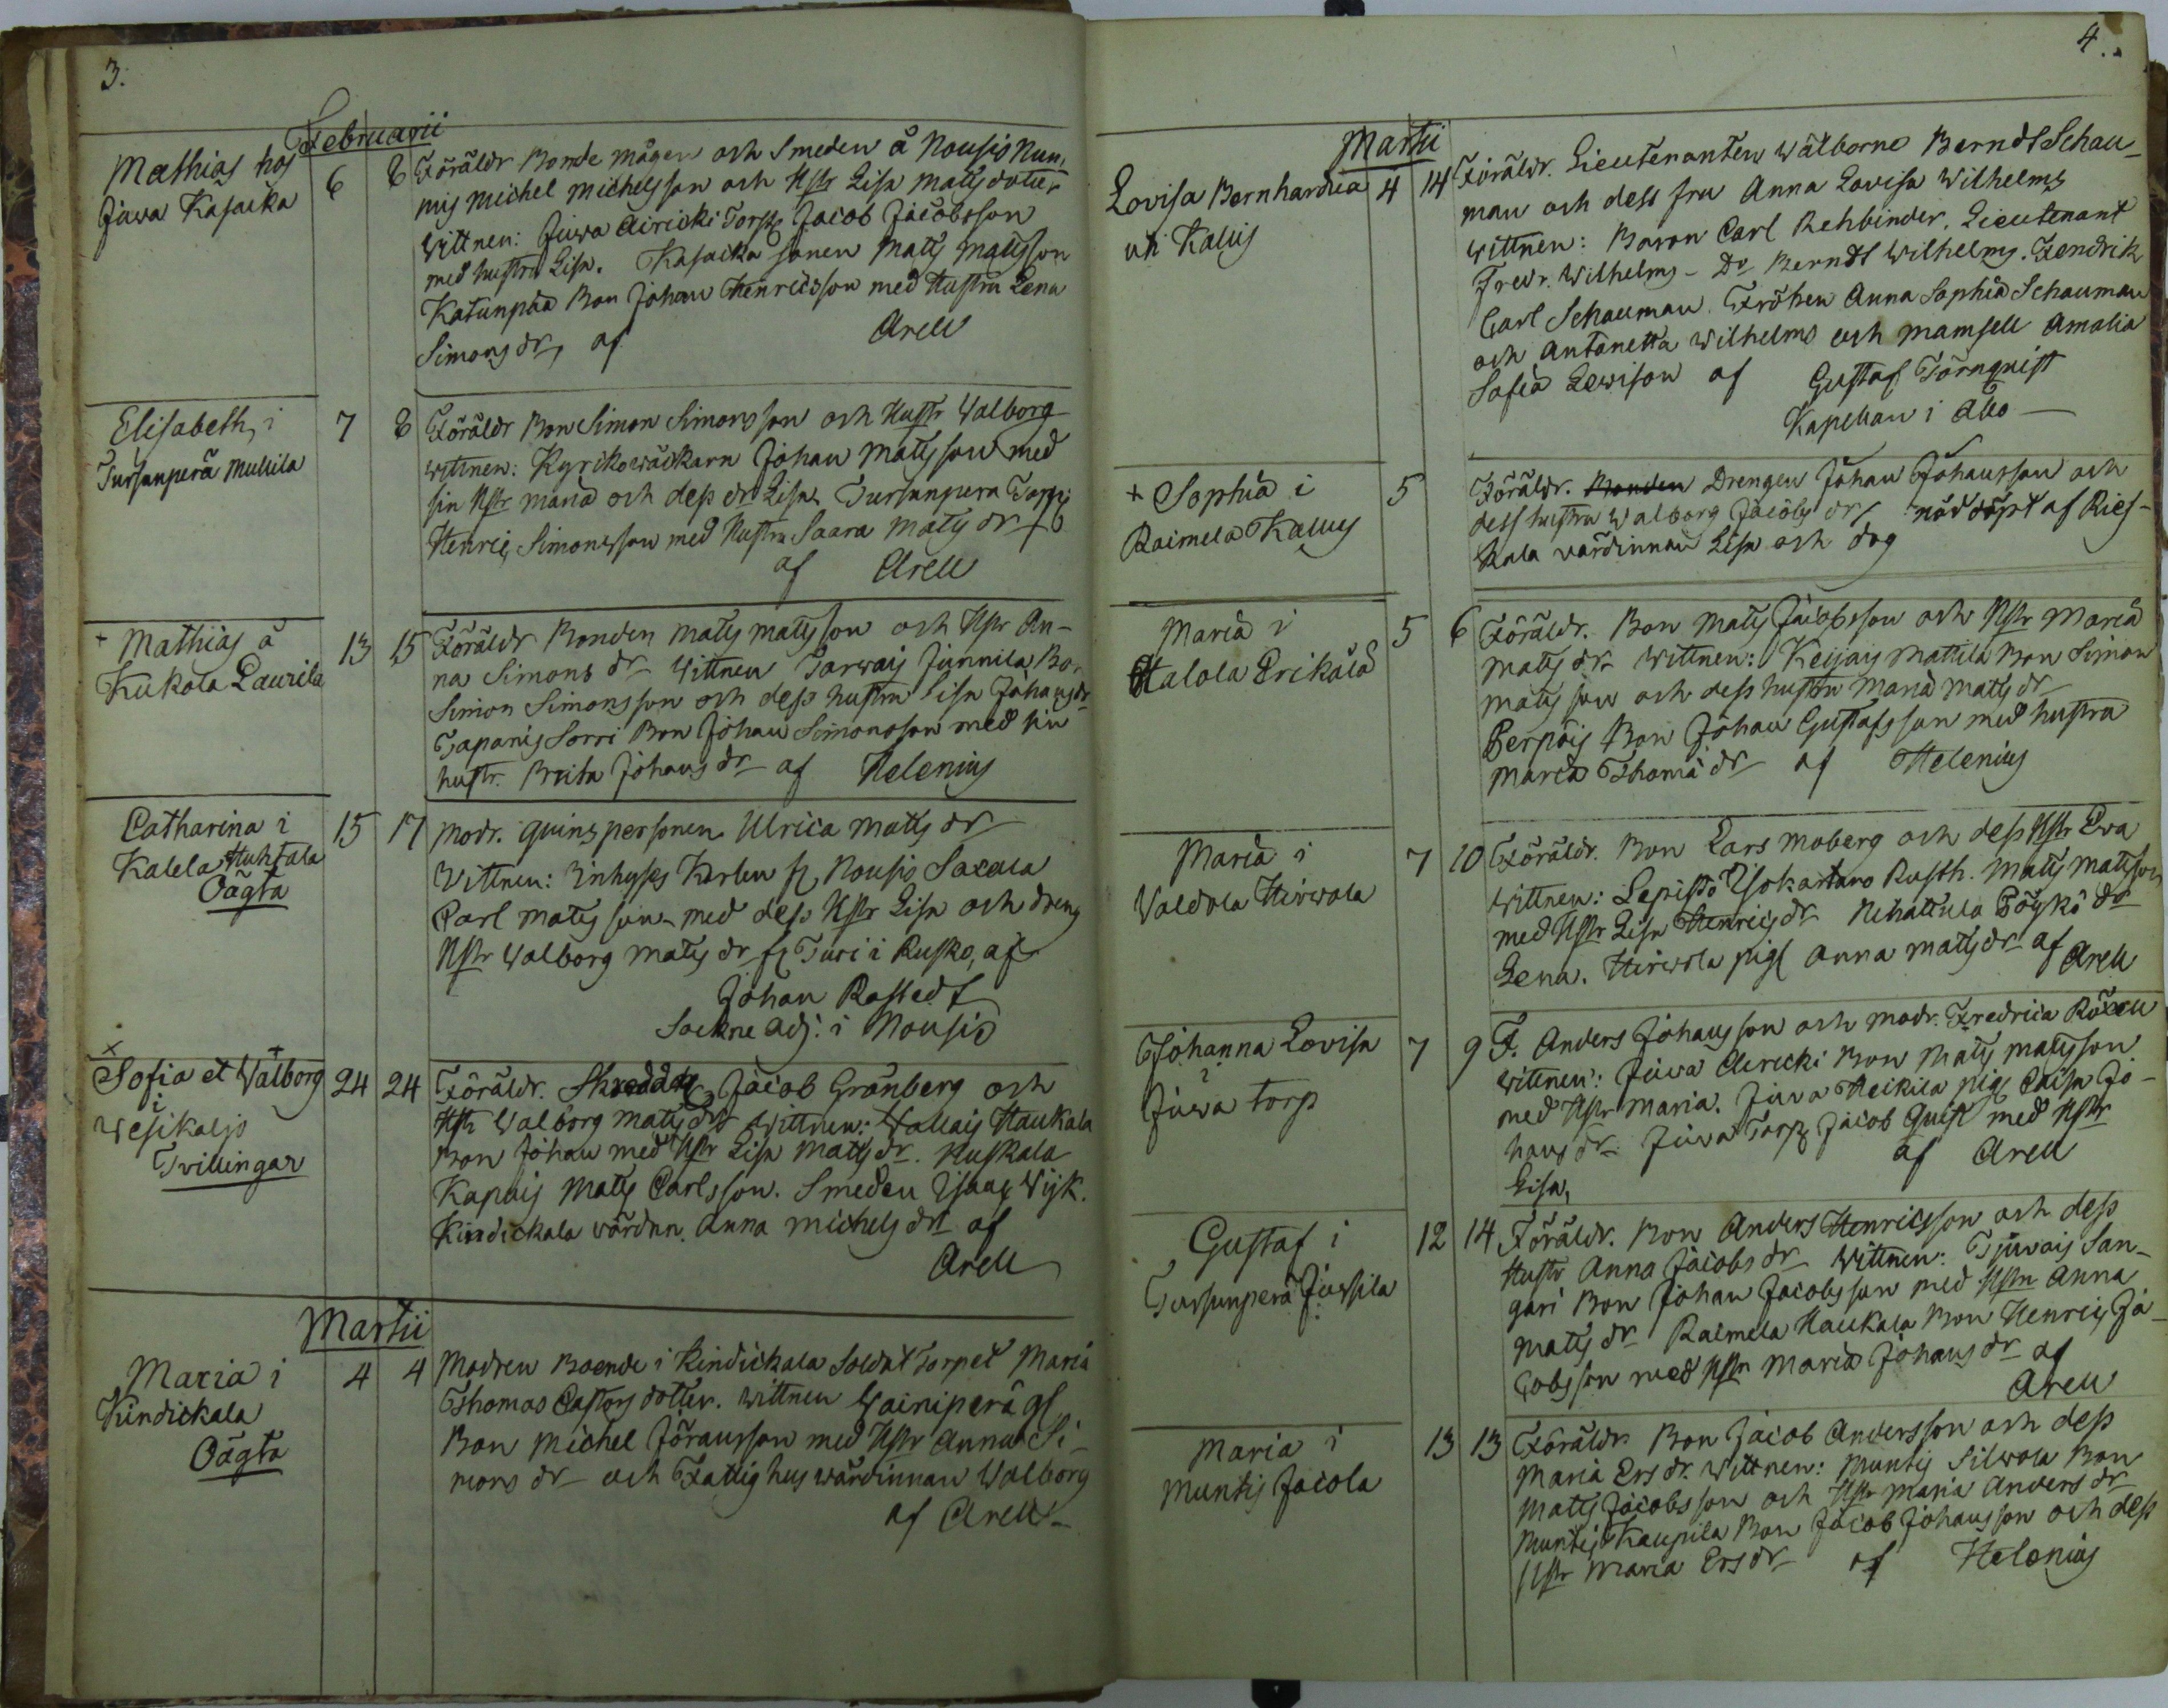 3.
Februarii
Mathias hos
Juva Kajaika
6 8
Föräldr Bonde mågen och Smeden å Nousis Nun,
nis Michel Michelsson och Hstr Lisa Matts dotter
Wittnen: Juva Airicki Torp Jacob Jacobsson
med hustru Lisa. Kajaika sonen Matts Mattsson
Katunpää Bon Johan Henricsson med Hustru Lena
Simons dr, af Arell
Elisabeth, i
Tursunperä Mullila
7 8
Föräldr Bon Simon Simonsson och Hustr Walborg
wittnen: Kyrkowäckarn Johan Matts son med
sin Hstr Maria och dess dr Lisa, Tursunpera Torp
Henric Simonsson med Hustru Saara Matts dr
af Arell
+ Mathias å
Kukola Laurila
13 15
Föräldr Bonden Matts Matts son och Hstr An-
na Simons dr Wittnen Tarwais Junnila Bo.
Simon Simonsson och dess hustru Lisa Johans dr
Tapanis Sorri Bon Johan Simonsson med sin
hustr. Brita Johans dr af Helenius
Catharina i
Kalela Huhtala
Oägta
15 17
Modr. quinspersonen Ulrica Matts dr
Wittnen: Inhyses Karlen fr Nousis Saxala
Carl Matts son med dess Hstr Lisa och dreng
Hstr Walborg Matts dr fr Turi i Rusko, af
Johan Rostedt
Sockne adj: i Nousis
x +
Sofia et Walborg
i
Wesikaljo
Tvillingar
24 24
Föräldr. Skredd Jacob Grönberg och
Hstr Walborg Matts dr Wittnen: Wallais Haukala
Bon Johan med Hstr Lisa Matts dr. Ruskala
Kapais Matts Carlsson. Smeden Isaac Wijk.
Kindickala värdnn. Anna Michels dr af
Arell
Martii
Maria i
Kindickala
Oägta
4 4
Modren Boende i Kindickala Soldat Torpet Maria
Thomas Castors dotter. Wittnen Wainiperä gl
Bon Michel Göransson med Hstr Anna Si-
mons dr och Fattighus wärdinnan Walborg
af Arell
4.
Martii
Lovisa Bernhardina
uti Kallis
4 14
Föräldr. Lieutenanten Wälborne Berndt Schau-
man och dess fru Anna Lovisa Wilhelms
Wittnen: Baron Carl Rehbinder, Lieutenant
Fredr. Wilhelms - Do Berndt Wilhelms. Fendrik
Carl Schauman. Fröken Anna Sophia Schauman
och Antonetta Wilhelms och Mamsell Amalia
Sofia Lewison af Gustaf Törnquist
Kapellan i Åbo
+ Sophia i
Raimela Kallus
5
Föräldr. Bonden Drengen Johan Johansson och
dess hustru Walborg Jacobs dr, nöd döpt af Ries-
kala vardinnan Lisa och dog
Maria i
Halola Erikälä
5 6
Föräldr. Bon Matts Jacobsson och Hstr Maria
Matts dr Wittnen: Keijais Mattila Bon Simon
Matts son och dess hustru Maria Matts dr
Perpois Bon Johan Gustafsson med hustru
Maria Thomæ dr af Helenius
Maria i
Valdola Hirwola
7 10
Föräldr. Bon Lars Moberg och dess Hstr Eva
Wittnen: Lepistö Isokartano Rusth. Matts Mattsson
med Hstr Lisa Henrics dr Nihattula Pöykö dr
Lena. Hirwola pig Anna Matts dr af Arell
Johanna Lovisa
i
Juva torp
7 9
F. Anders Johansson och Modr. Fredrica Röxell
Wittnen: Juva Airicki Bon Matts Mattsson
med Hstr Maria. Juva Heikila pig Caisa Jo-
hans dr Juva Torp Jacob Quist med Hstr
Lisa, af Arell
Gustaf i
Tursunperä Jussila
12 14
Föräldr. Bon Anders Henricsson och dess
Hustr Anna Jacobs dr Wittnen: Tjuvais San-
gari Bon Johan Jacobsson med Hstru Anna
Matts dr Raimela Haukala Bon Henric Ja-
cobsson med Hstru Maria Johans dr af
Arell
Maria i
Muntis Jacola
13 13
Föräldr. Bon Jacob Andersson och dess
Maria Ers dr. Wittnen: Muntis Silwola Bon
Matts Jacobsson och Hstr Maria Anders dr
Muntis Kaupila Bon Jacob Johansson och dess
Hstr Maria Ers dr af Helenius